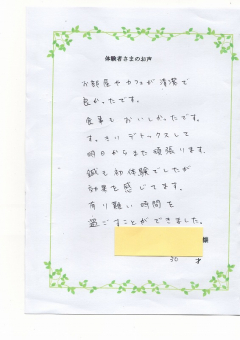 体験者さまのお声
お部屋やカフェが清潔で
良かったです。
食事もおいしかったです。
すっきりデトックスして
明日からまた頑張ります。
鍼も初体験でしたが
効果を感じてます。
有り難い時間を
過ごすことができました。
様
30 才